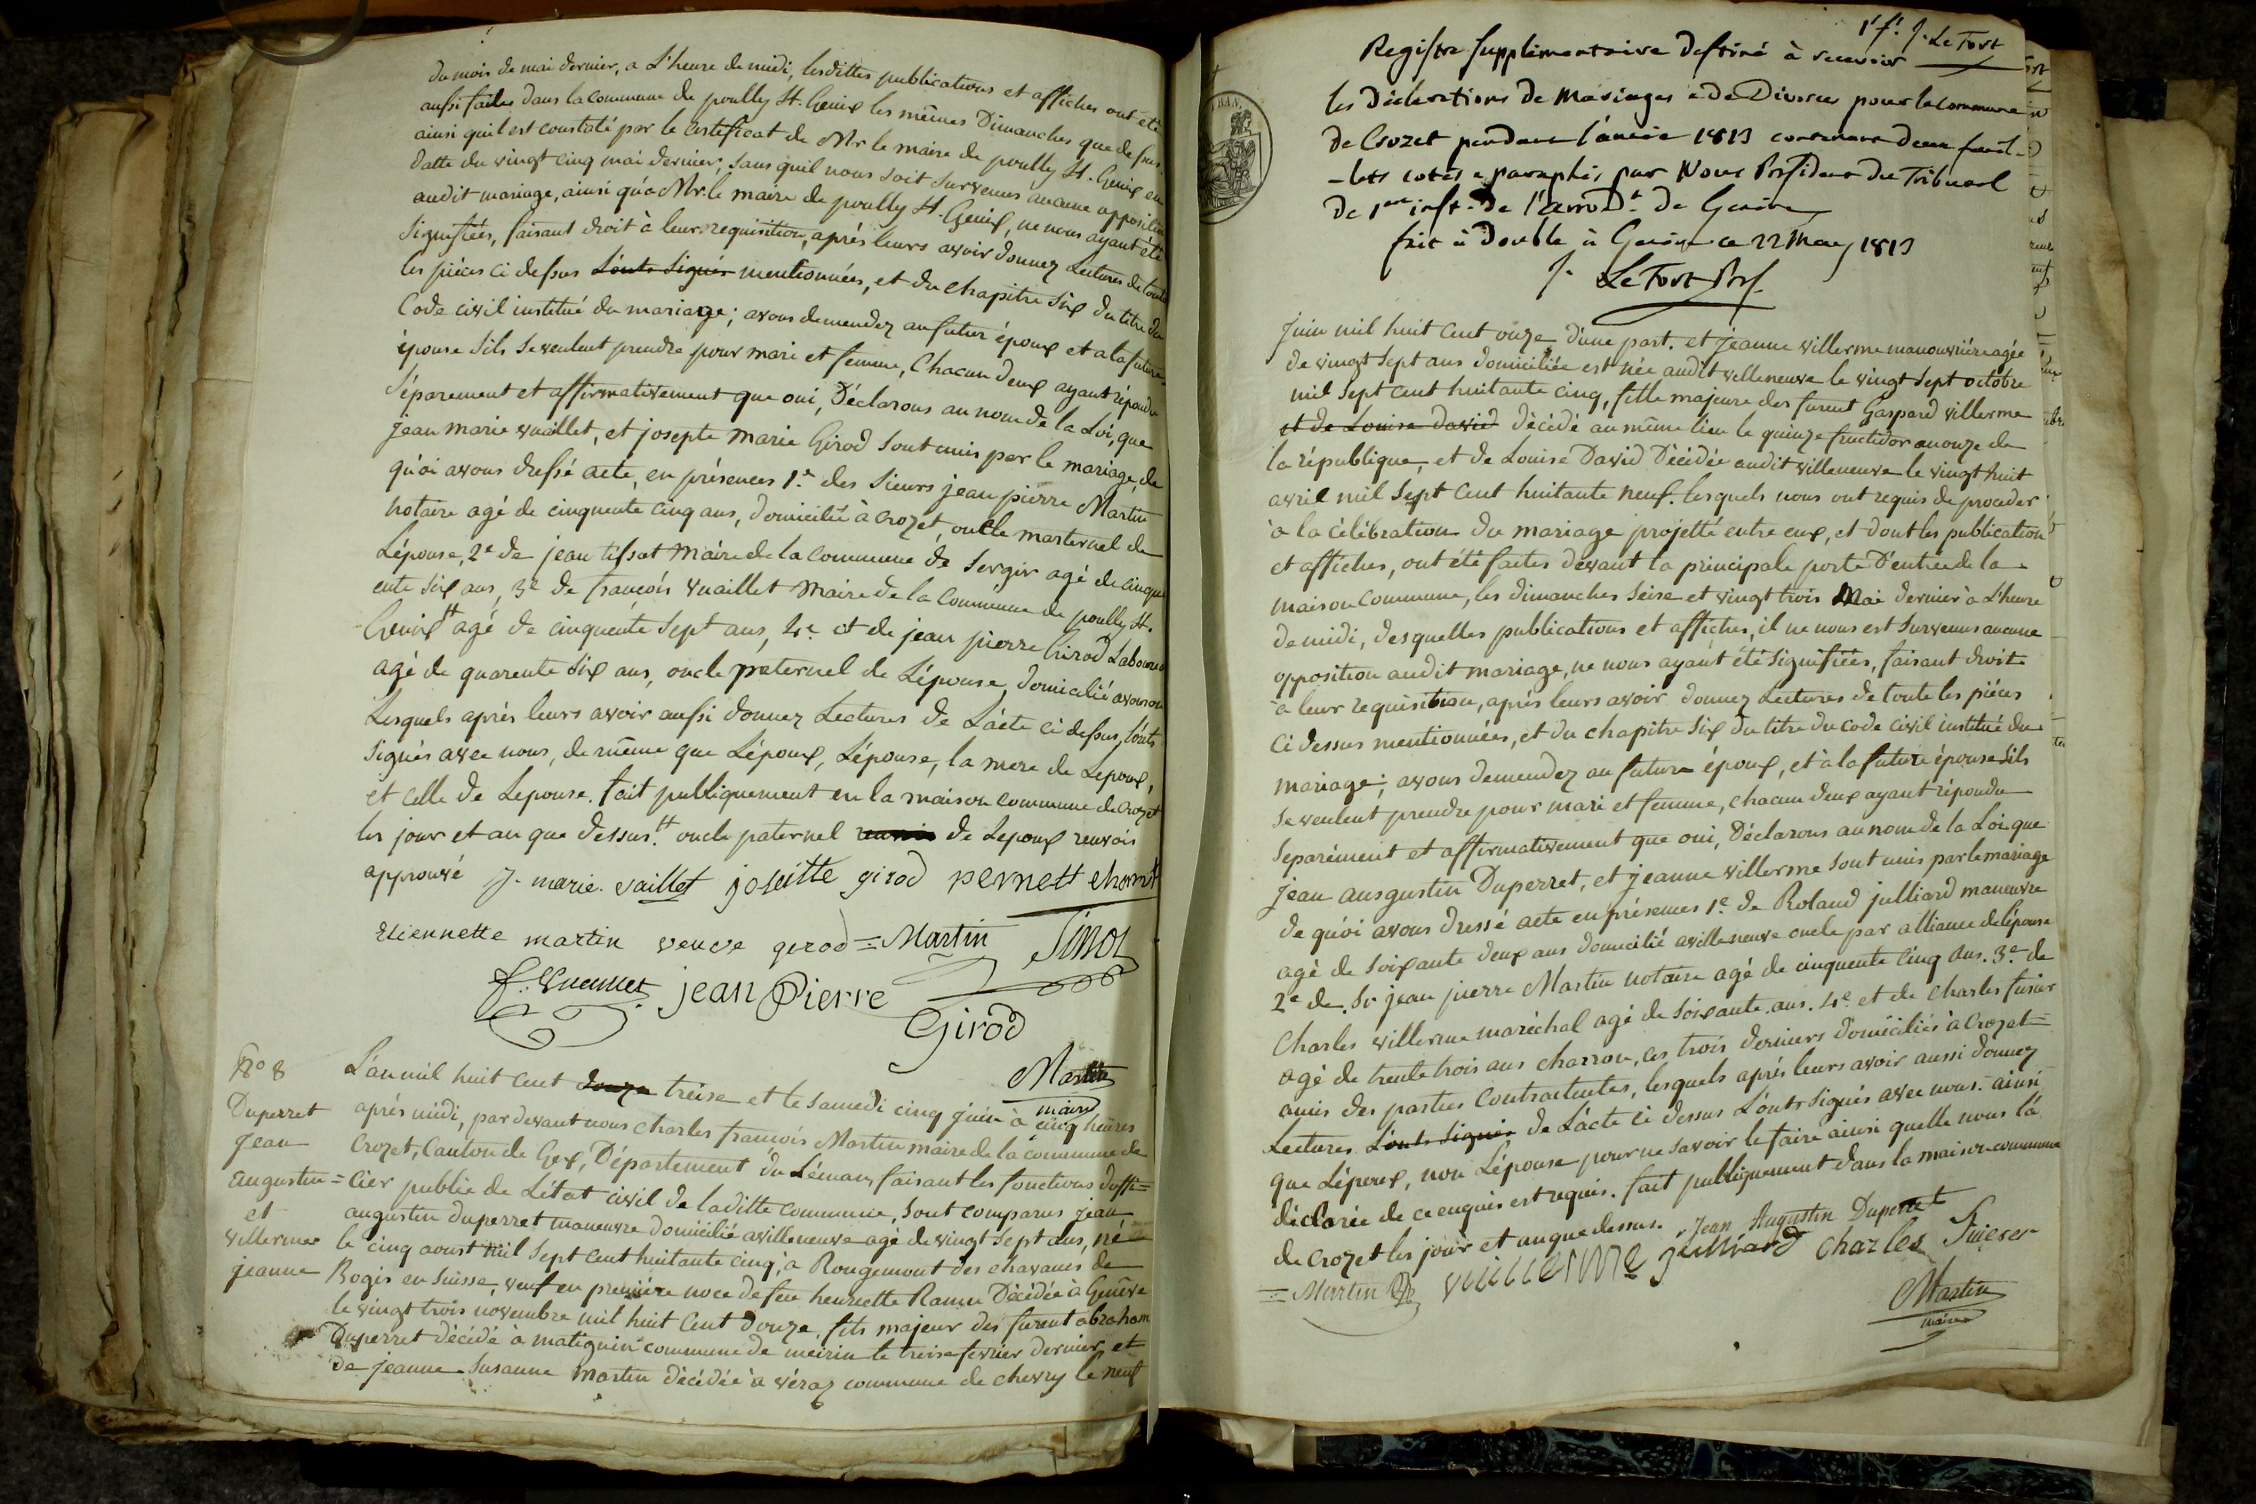 du mois de mai dernier, a L'heure de midi, lesdittes publications et affiches ont été
aussi faites dans la commune de poully St. Genix les mêmes Dimanches que dessus
ainsi quil est constaté par le certificat de Mr le maire de poully St. Genix en
datte du vingt cinq mai dernier, sans quil nous soit survenus aucune opposition
audit mariage, ainsi qu'a Mr. le maire de poully St. Genix, ne nous ayant été
signifiées, faisant droit à leur requisition, après leurs avoir donnez Lectures de toute
les pièces ci dessus L'onts signés mentionnées, et du chapitre six du titre du
Code civil institué du mariage; avons demendez au futur époux et a la future
épouse sils se veulent prendre pour mari et femme, Chacun deux ayant répondu
séparement et affirmativement que oui, Déclarons au nom de la Loi, que
jean marie vuaillet, et josepte marie Girod sont unis par le mariage, de
quoi avons dressé acte, en présences 1.e des sieurs jean pierre Martin
notaire agé de cinquente cinq ans, domicilié à crozet, oncle marternel de
L'épouse, 2.e de jean tissot maire de la commune de Sergir agé de cinqu
ente six ans, 3.e de francois vuaillet maire de la commune de poully St.
Genix # agé de cinquente sept ans, 4.e et de jean pierre Girod Laboureur
agé de quarente six ans, oncle paternel de L'épouse, domicilié avouson
Lesquels après leurs avoir aussi donnez Lectures de L'acte ci dessus, L'onts
signés avec nous, de même que L'époux, L'épouse, la mere de Lepoux,
et celle de Lepouse. fait publiquement en la maison commune de crozet
les jour et an que dessus. # oncle paternel de Lepoux renvois
approuvé J. marie. vaillet joseitte girod pernett
etiennette martin veuve gerod = Martin Tissot
f. Vuaillet jean Pierre
Girod
Martin
maire
No 8
Duperret
jean
augustin =
et
villerme
jeanne
L'an mil huit cent douze treise et le samedi cinq juin à cinq heures
après midi, par devant nous charles francois Martin maire de la commune de
crozet, Canton de Gex, Département du Léman, faisant les fonctions d'offi=
cier public de L'état civil de laditte commune, sont comparus jean
augustin duperret maneuvre domicilié avilleneuve agé de vingt sept ans, né
le cinq aoust mil sept cent huitante cinq, à Rougemont des chavanes de
Rogis en Suisse, veuf en première noce de feu henriette Ramu Décédée à Genêve
le vingt trois novembre mil huit cent douze, fils majeur des furent abraham
Duperret décédé à matignin commune de meirin le treise fevrier dernier, et
de jeanne Susanne martin décédée à véraz commune de chevry le neuf
1r f.t J. Le Fort
Registre supplémentaire destiné à recevoir
les déclarations de Mariages & de Divorces pour la commune
de Crozet pendant l'année 1813 contenant deux feuil-
-lets cotés & paraphés par Nous Président du Tribunal
de 1ere inst. de l'arrond.t de Genève
fait à double à Genève ce 22 May 1813
J. Le Fort Prs.
juin mil huit cent onze, d'une part. et jeanne villerme manouvrière agée
de vingt sept ans domiciliée est née audit villeneuve le vingt sept octobre
mil sept cent huitante cinq, fille majeure des furent Gaspard villerme
et de Louise david décédé au même lieu le quinze fructidor an onze de
la république, et de Louise David Décédée audit villeneuve le vingt huit
avril mil sept cent huitante neuf. lesquels nous ont requis de proceder
à la célébration du mariage projetté entre eux, et dont les publication
et affiches, ont été faites devant la principale porte D'entrée de la
maison commune, les dimanches seise et vingt trois Mai dernier à L'heure
de midi, desquelles publications et affiches, il ne nous est survenus aucune
opposition audit mariage, ne nous ayant été signifiées, faisant droit
à leur requisition, après leurs avoir donnez Lectures de toute les pièces
ci dessus mentionnées, et du chapitre six du titre du code civil institué du
mariage; avons demendez au future époux, et à la future épouse sils
se veulent prendre pour mari et femme, chacun deux ayant répondu
separément et affirmativement que oui, Déclarons au nom de la Loi que
jean ausgustin Duperret, et jeanne villerme sont unis par le mariage
de quoi avons dressé acte en présences 1.e de Roland julliard maneuvre
agé de soixante deux ans domicilié avilleneuve oncle par alliance de l'épouse
2.e de Sr. jean pierre Martin notaire agé de cinquente cinq ans. 3.e de
Charles villerme maréchal agé de soixante ans. 4.e et de charles
agé de trente trois ans charron, ces trois derniers domiciliés à crozet
amis des parties contractantes, lesquels après leurs avoir aussi donnez
Lectures L'onts signés de L'acte ci dessus L'onts signés avec nous. ainsi
que L'époux, non L'épouse pour ne savoir le faire ainsi quelle nous l'a
déclarée de ce enquis est requis. fait publiquement dans la maison commune
de crozet les jour et an que dessus. Jean Augustin Duperret
= Martin vuillerme julliard charles
Martin
maire